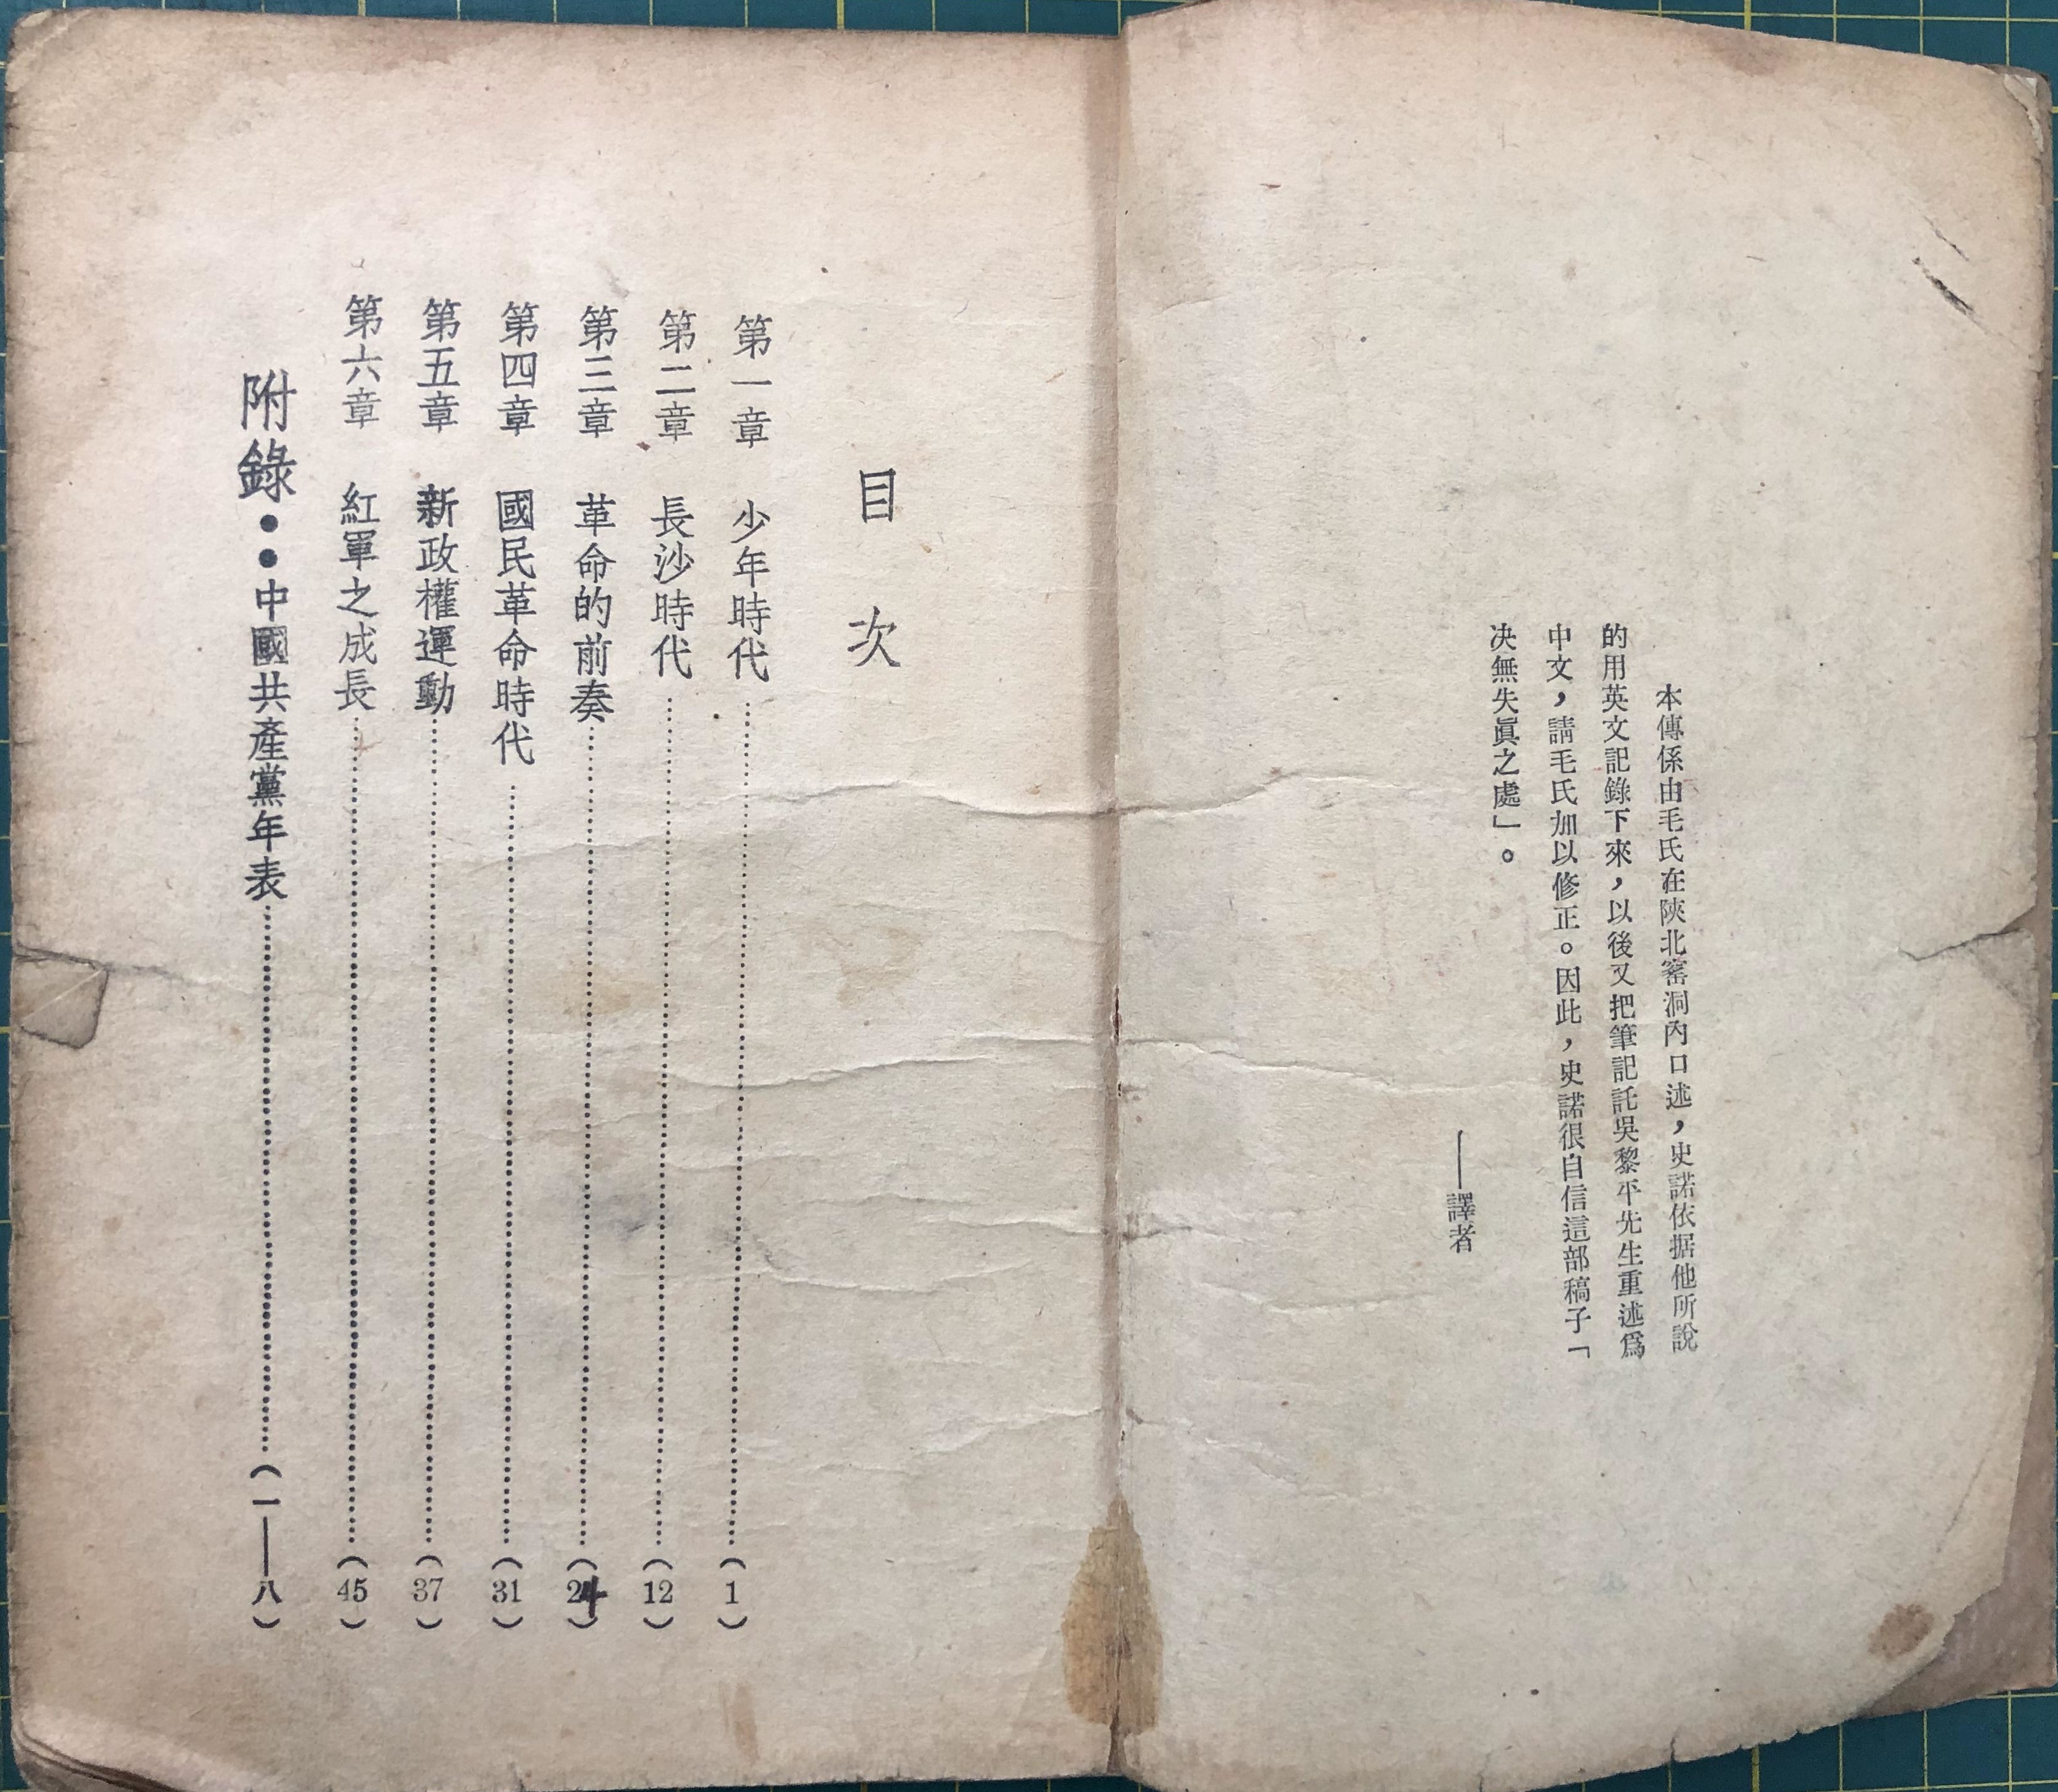 本傳係由毛氏在陝北窰洞內口述，史諾依据他所說
的用英文記錄下來，以後又把筆記託吳黎平先生重述爲
中文，請毛氏加以修正。因此，史諾很自信這部稿子「
决無失眞之處」。
——譯者
目次
第一章 少年時代……………(1)
第二章 長沙時代……………(12)
第三章 革命的前奏……………(24)
第四章 國民革命時代……………(31)
第五章 新政權運動……………(37)
第六章 紅軍之成長……………(45)
附錄：中國共產黨年表……………(一——八)